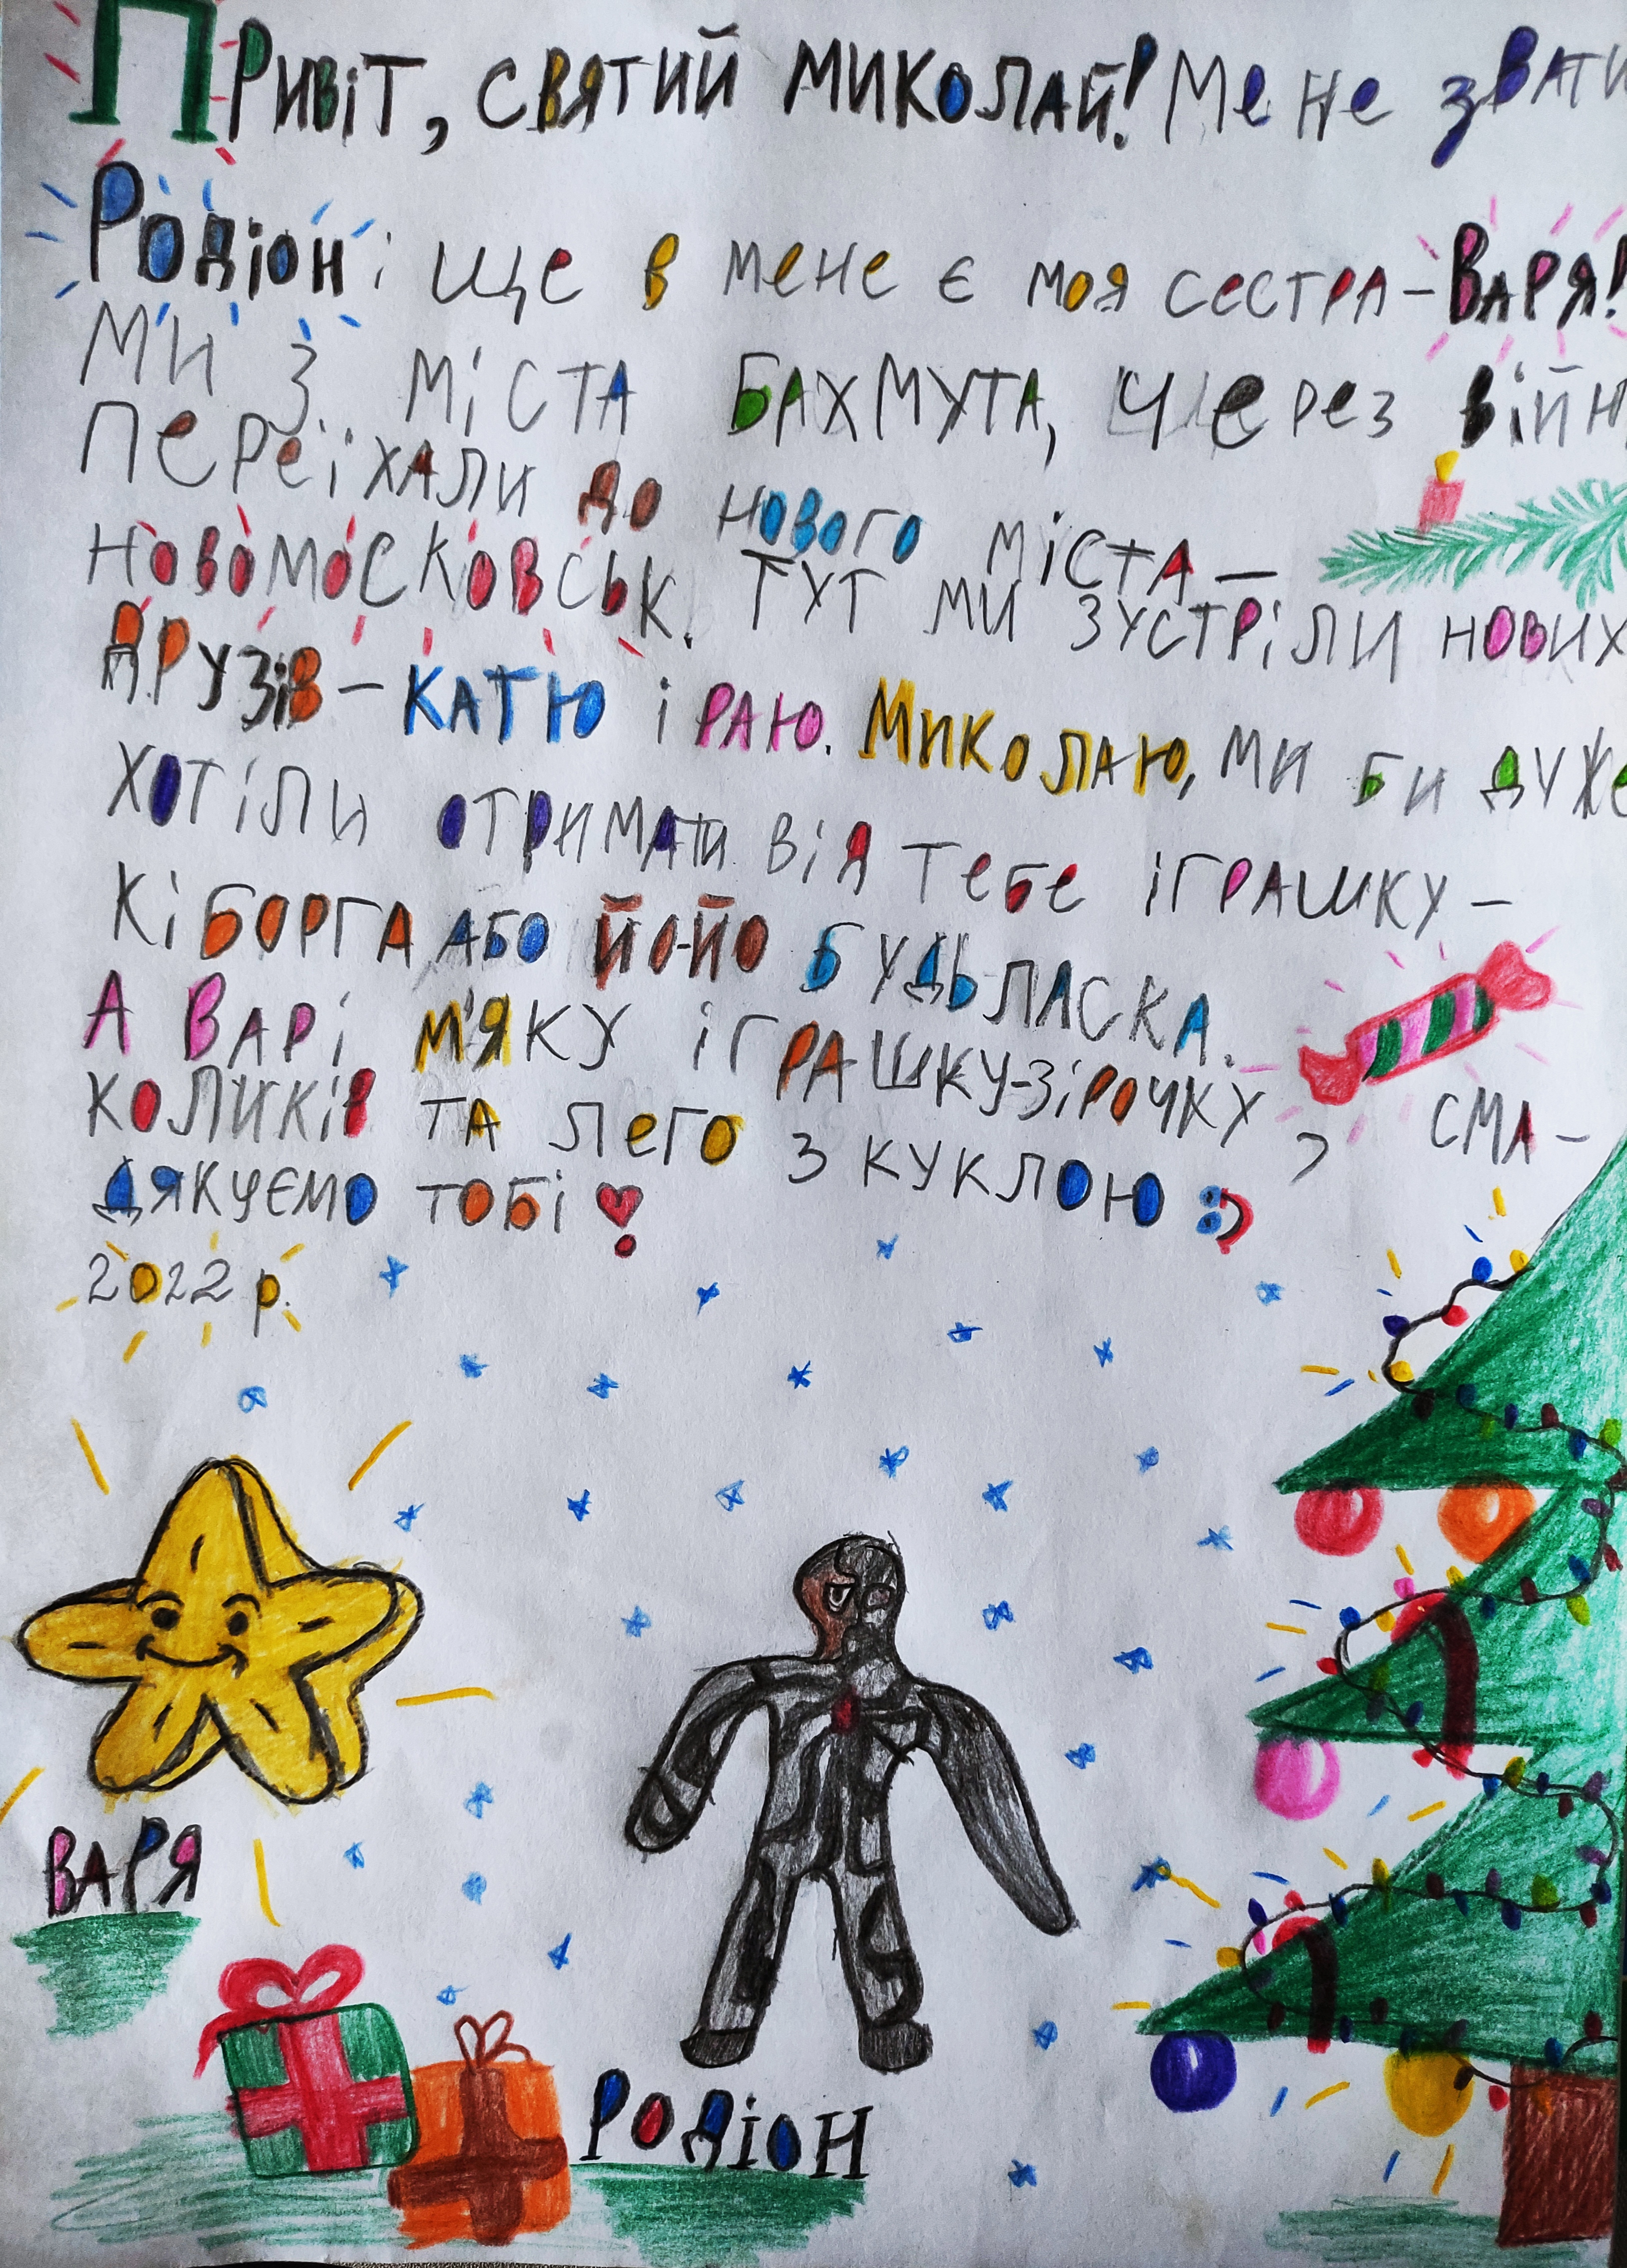 Привіт, святий Миколай! Мене звати
Родіон і ще в мене є моя сестра - Варя!
Ми з міста Бахмута, через війн
переїхали до нового міста -
Новомосковськ. Тут ми зустріли нових
друзів - Катю і Раю. Миколаю, ми би дуже
хотіли отримати від тебе іграшку -
кіборга або йо-йо будь ласка.
А Варі м'яку іграшку-зірочку, сма-
коликів та лего з куклою :)
Дякуємо тобі
2022 р.
Варя
Родіон